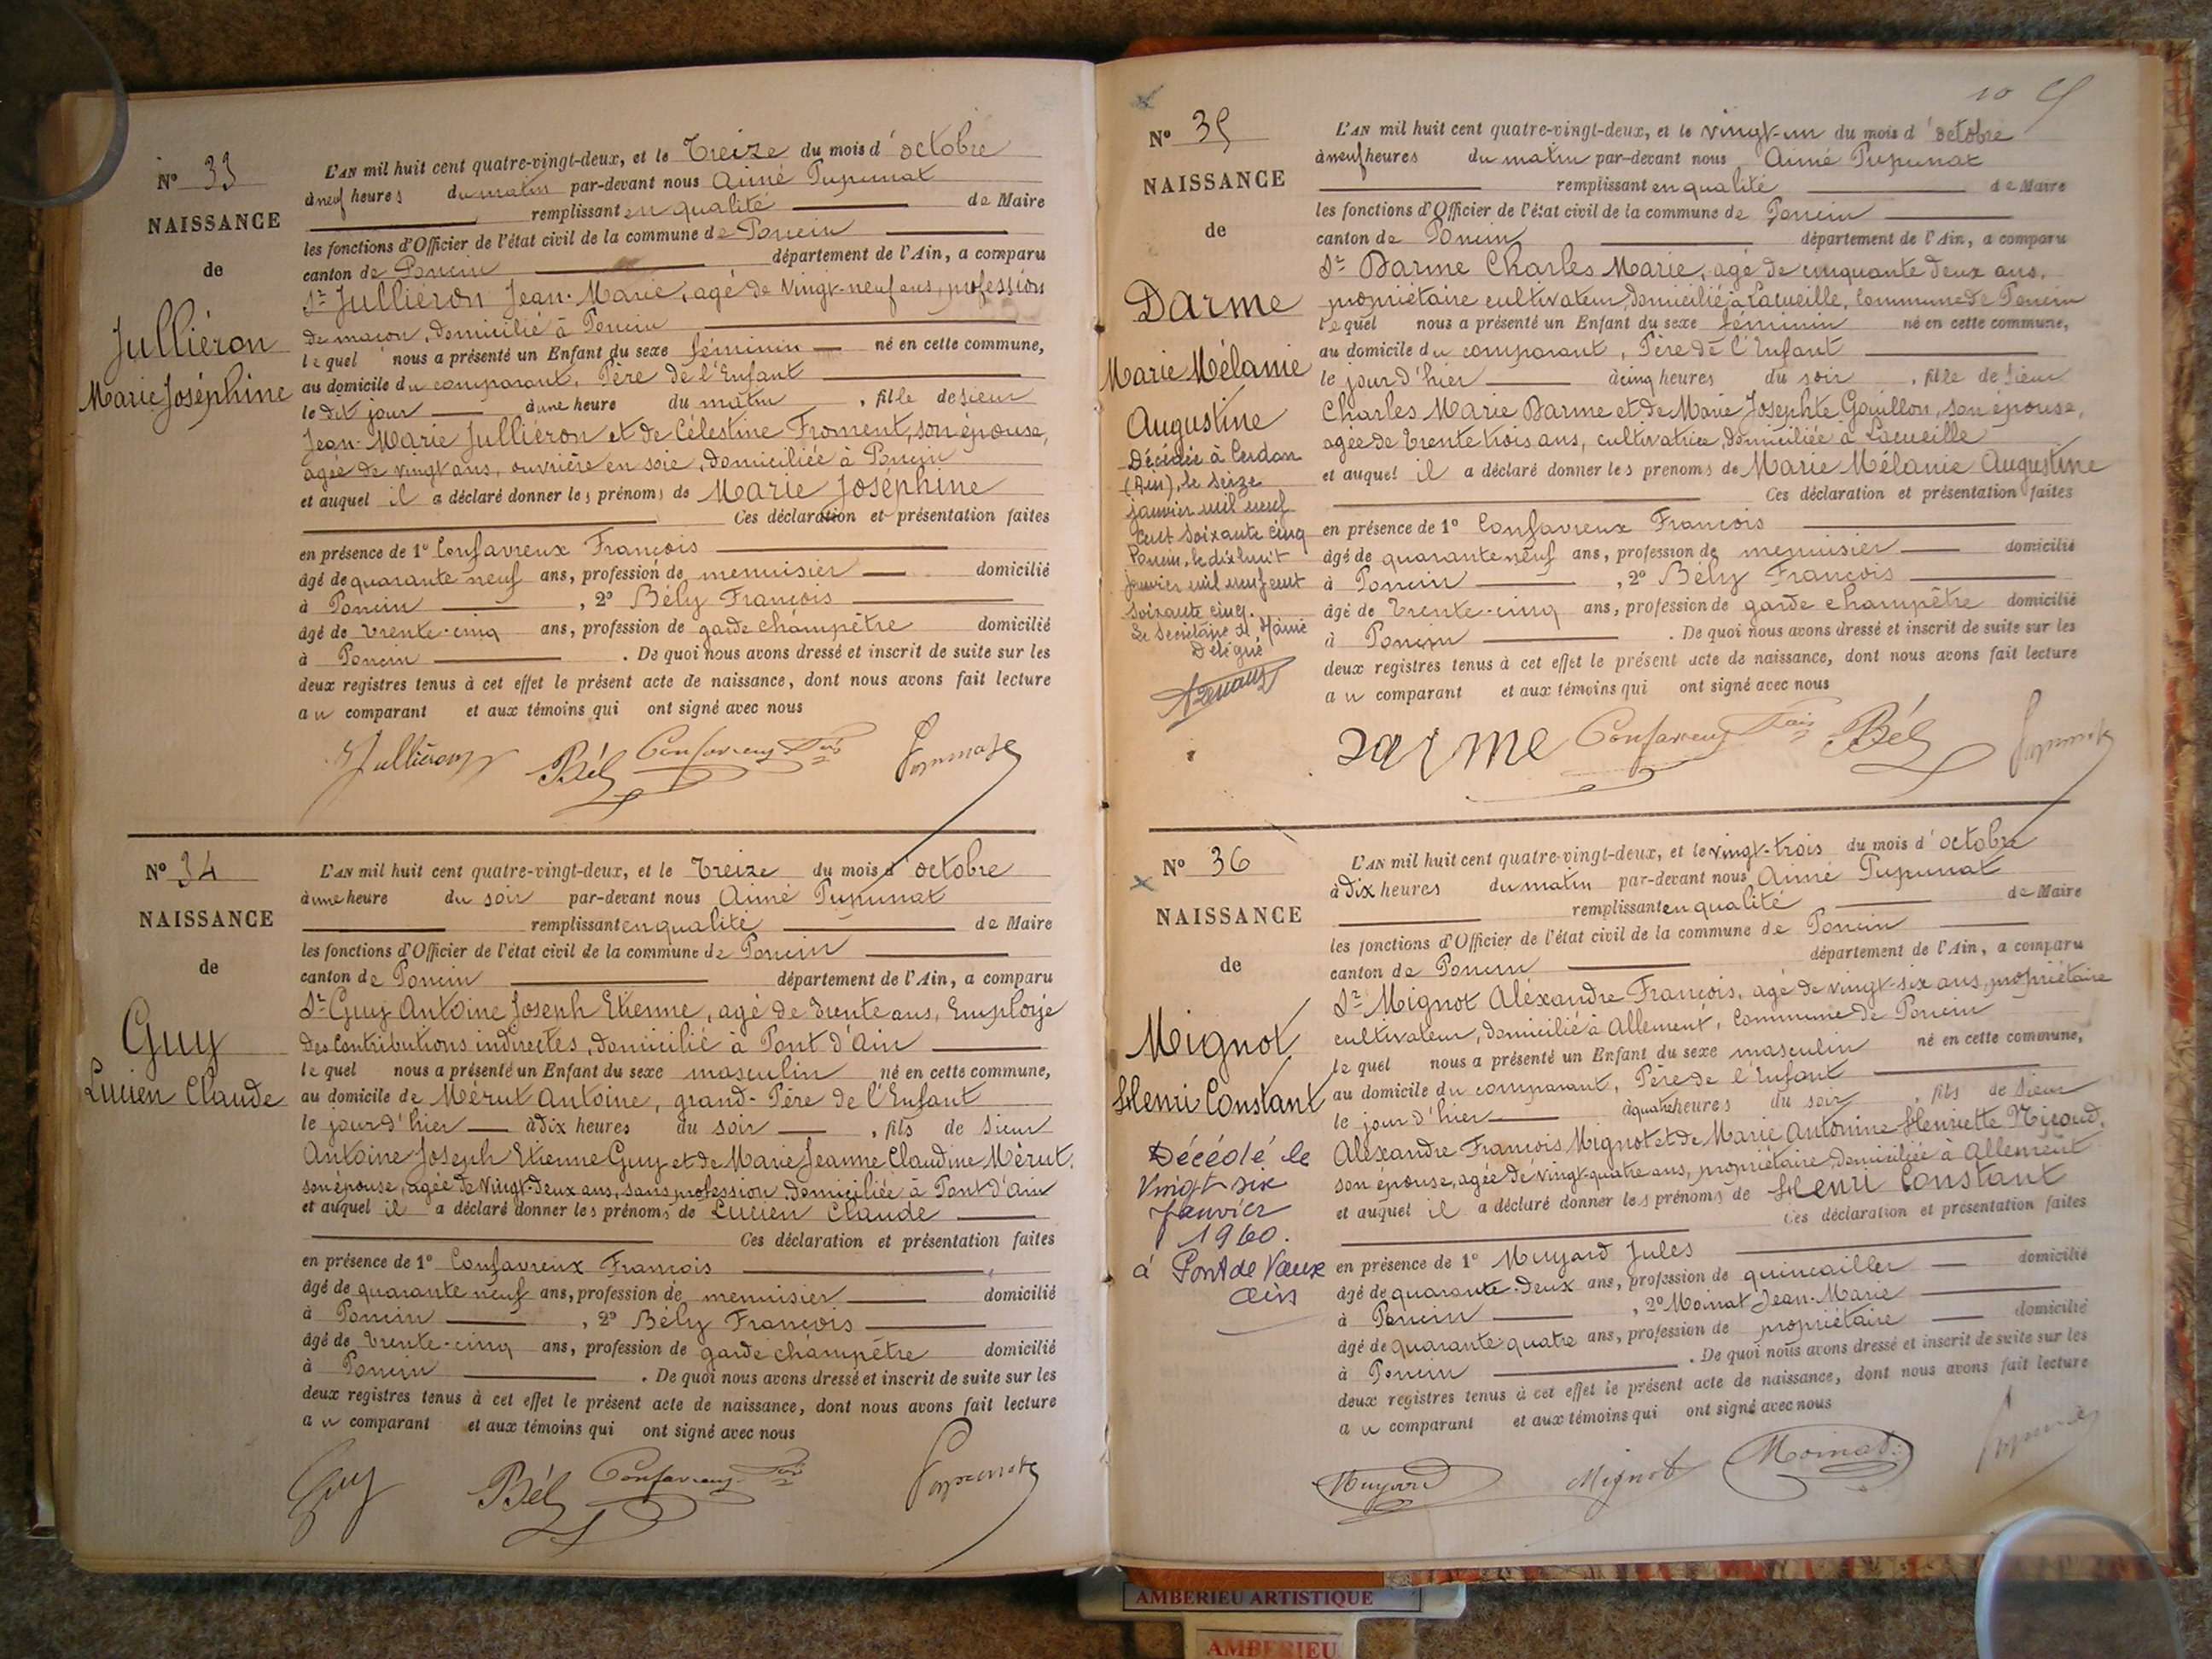 N° 33
NAISSANCE
de
Julliéron
Marie Joséphine
L'AN mil huit cent quatre-vingt-deux, et le Treize du mois d'octobre
à neuf heures du matin par-devant nous Aimé Pupunat
remplissant en qualité de Maire
les fonctions d'Officier de l'état civil de la commune de Poncin
canton de Poncin département de l'Ain, a comparu
Sr Julliéron Jean-Marie, agé de vingt-neuf ans, profession
de maçon, domicilié à Poncin
lequel nous a présenté un Enfant du sexe féminin né en cette commune,
au domicile du comparant, Père de l'Enfant
le dit jour à une heure du matin, fille de sieur
Jean-Marie Julliéron et de Célestine Froment, son épouse,
agée de vingt ans, ouvrière en soie, domiciliée à Poncin
et auquel il a déclaré donner les prénoms de Marie Joséphine
Ces déclaration et présentation faites
en présence de 1° Confavreux François
âgé de quarante neuf ans, profession de menuisier domicilié
à Poncin, 2° Bély François
âgé de trente-cinq ans, profession de garde champêtre domicilié
à Poncin. De quoi nous avons dressé et inscrit de suite sur les
deux registres tenus à cet effet le présent acte de naissance, dont nous avons fait lecture
au comparant et aux témoins qui ont signé avec nous
Julliéron Bély Confavreux Fois Pupunat
N° 34
NAISSANCE
de
Guy
Lucien Claude
L'AN mil huit cent quatre-vingt-deux, et le Treize du mois d'octobre
à une heure du soir par-devant nous Aimé Pupunat
remplissant en qualité de Maire
les fonctions d'Officier de l'état civil de la commune de Poncin
canton de Poncin département de l'Ain, a comparu
Sr Guy Antoine Joseph Etienne, agé de trente ans, Employé
des Contributions indirectes, domicilié à Pont d'Ain
lequel nous a présenté un Enfant du sexe masculin né en cette commune,
au domicile de Mérut Antoine, grand-Père de l'Enfant
le jour d'hier à dix heures du soir, fils de sieur
Antoine Joseph Etienne Guy et de Marie Jeanne Claudine Mérut,
son épouse, agée de vingt-deux ans, sans profession, domiciliée à Pont d'Ain
et auquel il a déclaré donner les prénoms de Lucien Claude
Ces déclaration et présentation faites
en présence de 1° Confavreux François
âgé de quarante neuf ans, profession de menuisier domicilié
à Poncin, 2° Bély François
âgé de trente-cinq ans, profession de garde champêtre domicilié
à Poncin. De quoi nous avons dressé et inscrit de suite sur les
deux registres tenus à cet effet le présent acte de naissance, dont nous avons fait lecture
au comparant et aux témoins qui ont signé avec nous
Guy Bély Confavreux Fois Pupunat
10
N° 35
NAISSANCE
de
Darme
Marie Mélanie
Augustine
Décédée à Cerdon
(Ain), le seize
janvier mil neuf
cent soixante cinq
Poncin, le dix huit
janvier mil neuf cent
soixante cinq.
Le Secrétaire de Mairie
Délégué
L'AN mil huit cent quatre-vingt-deux, et le vingt-un du mois d'octobre
à neuf heures du matin par-devant nous Aimé Pupunat
remplissant en qualité de Maire
les fonctions d'Officier de l'état civil de la commune de Poncin
canton de Poncin département de l'Ain, a comparu
Sr Darme Charles Marie, agé de cinquante deux ans,
propriétaire cultivateur, domicilié à Lacueille, commune de Poncin
lequel nous a présenté un Enfant du sexe féminin né en cette commune,
au domicile du comparant, Père de l'Enfant
le jour d'hier à cinq heures du soir, fille de sieur
Charles Marie Darme et de Marie Josephte Gouillon, son épouse,
agée de trente trois ans, cultivatrice, domiciliée à Lacueille
et auquel il a déclaré donner les prénoms de Marie Mélanie Augustine
Ces déclaration et présentation faites
en présence de 1° Confavreux François
âgé de quarante neuf ans, profession de menuisier domicilié
à Poncin, 2° Bély François
âgé de trente-cinq ans, profession de garde champêtre domicilié
à Poncin. De quoi nous avons dressé et inscrit de suite sur les
deux registres tenus à cet effet le présent acte de naissance, dont nous avons fait lecture
au comparant et aux témoins qui ont signé avec nous
Darme Confavreux Fois Bély Pupunat
N° 36
NAISSANCE
de
Mignot
Henri Constant
Décédé le
vingt six
Janvier
1960.
à Pont de Vaux
Ain
L'AN mil huit cent quatre-vingt-deux, et le vingt-trois du mois d'octobre
à dix heures du matin par-devant nous Aimé Pupunat
remplissant en qualité de Maire
les fonctions d'Officier de l'état civil de la commune de Poncin
canton de Poncin département de l'Ain, a comparu
Sr Mignot Aléxandre François, agé de vingt-six ans, propriétaire
cultivateur, domicilié à Allement, Commune de Poncin
lequel nous a présenté un Enfant du sexe masculin né en cette commune,
au domicile du comparant, Père de l'Enfant
le jour d'hier à quatre heures du soir, fils de sieur
Aléxandre François Mignot et de Marie Antonine Henriette
son épouse, agée de vingt-quatre ans, propriétaire, domiciliée à Allement
et auquel il a déclaré donner les prénoms de Henri Constant
Ces déclaration et présentation faites
en présence de 1° Muyard Jules
âgé de quarante-deux ans, profession de quincailler domicilié
à Poncin, 2° Moinat Jean-Marie
âgé de quarante-quatre ans, profession de propriétaire domicilié
à Poncin. De quoi nous avons dressé et inscrit de suite sur les
deux registres tenus à cet effet le présent acte de naissance, dont nous avons fait lecture
au comparant et aux témoins qui ont signé avec nous
Muyard Mignot Moinat Pupunat
AMBERIEU ARTISTIQUE
AMBERIEU